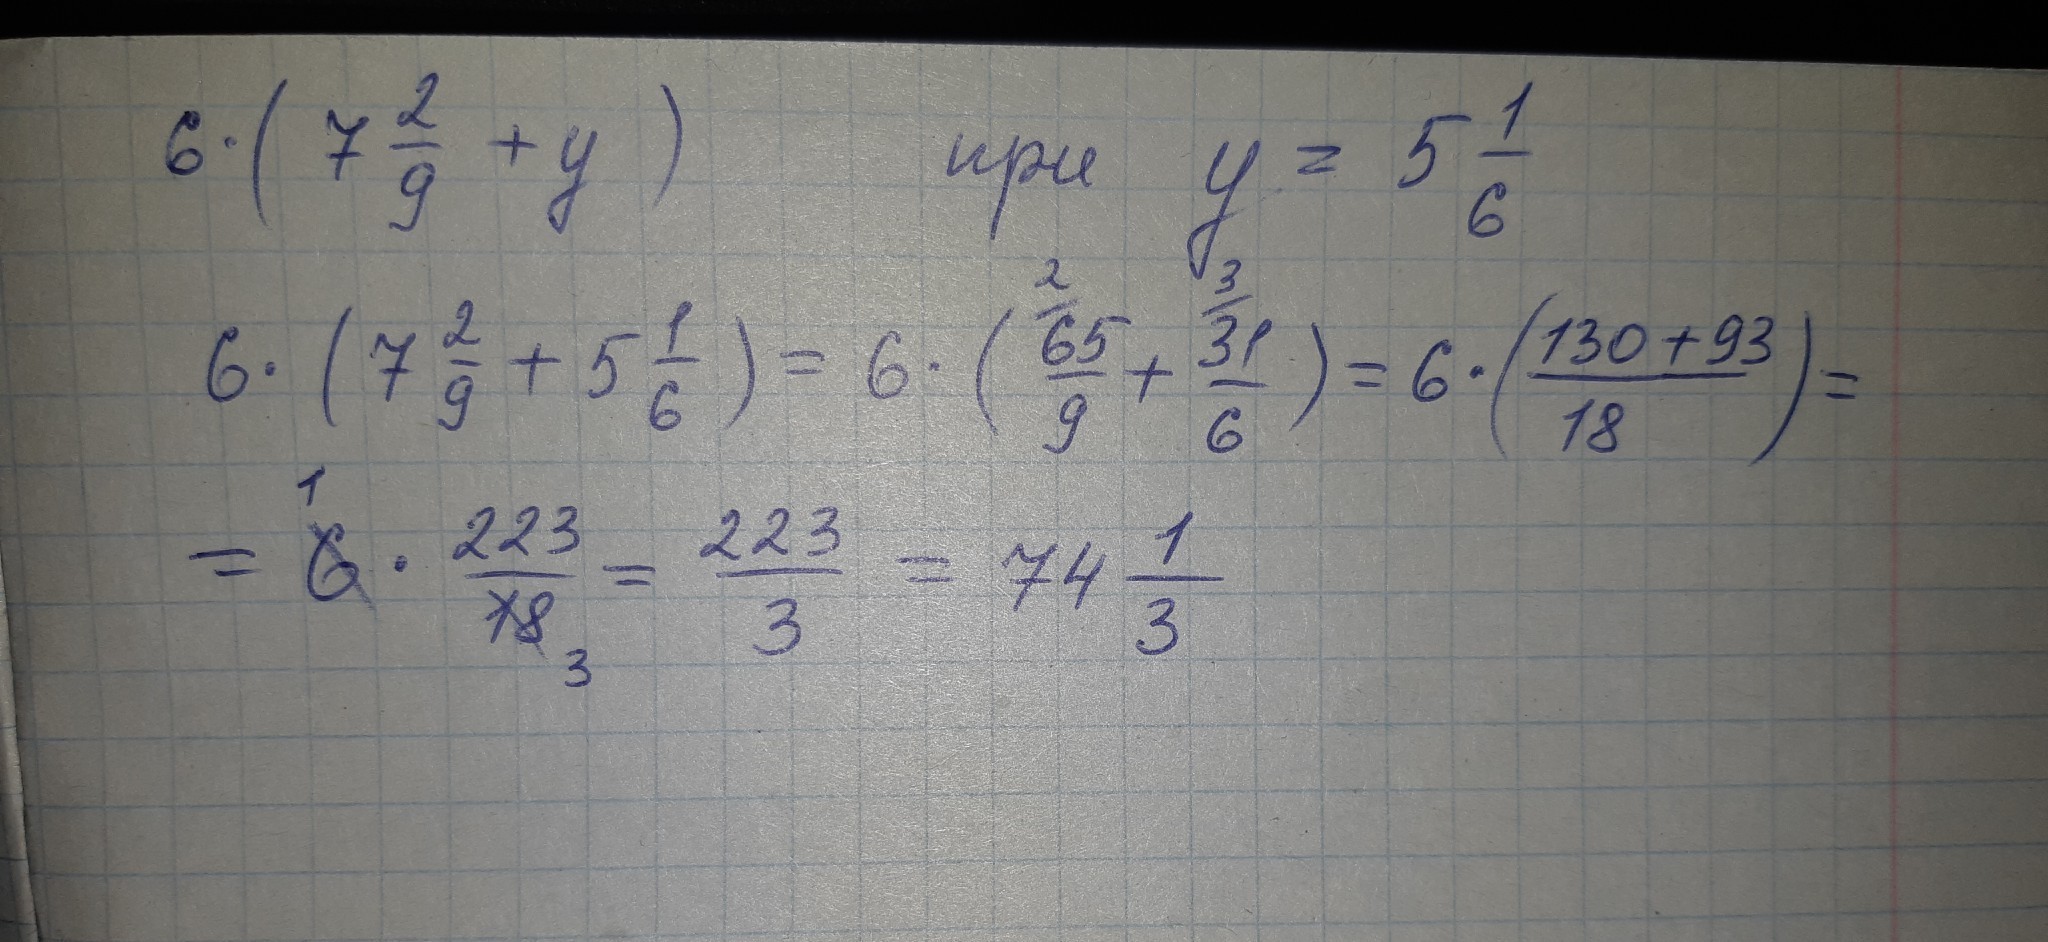 6·(7 2/9 + y) при y = 5 1/6
6·(7 2/9 + 5 1/6) = 6·(²/65/9 + ³/31/6) = 6·((130+93)/18) =
= 6 ¹ · 223/18 ₃ = 223/3 = 74 1/3